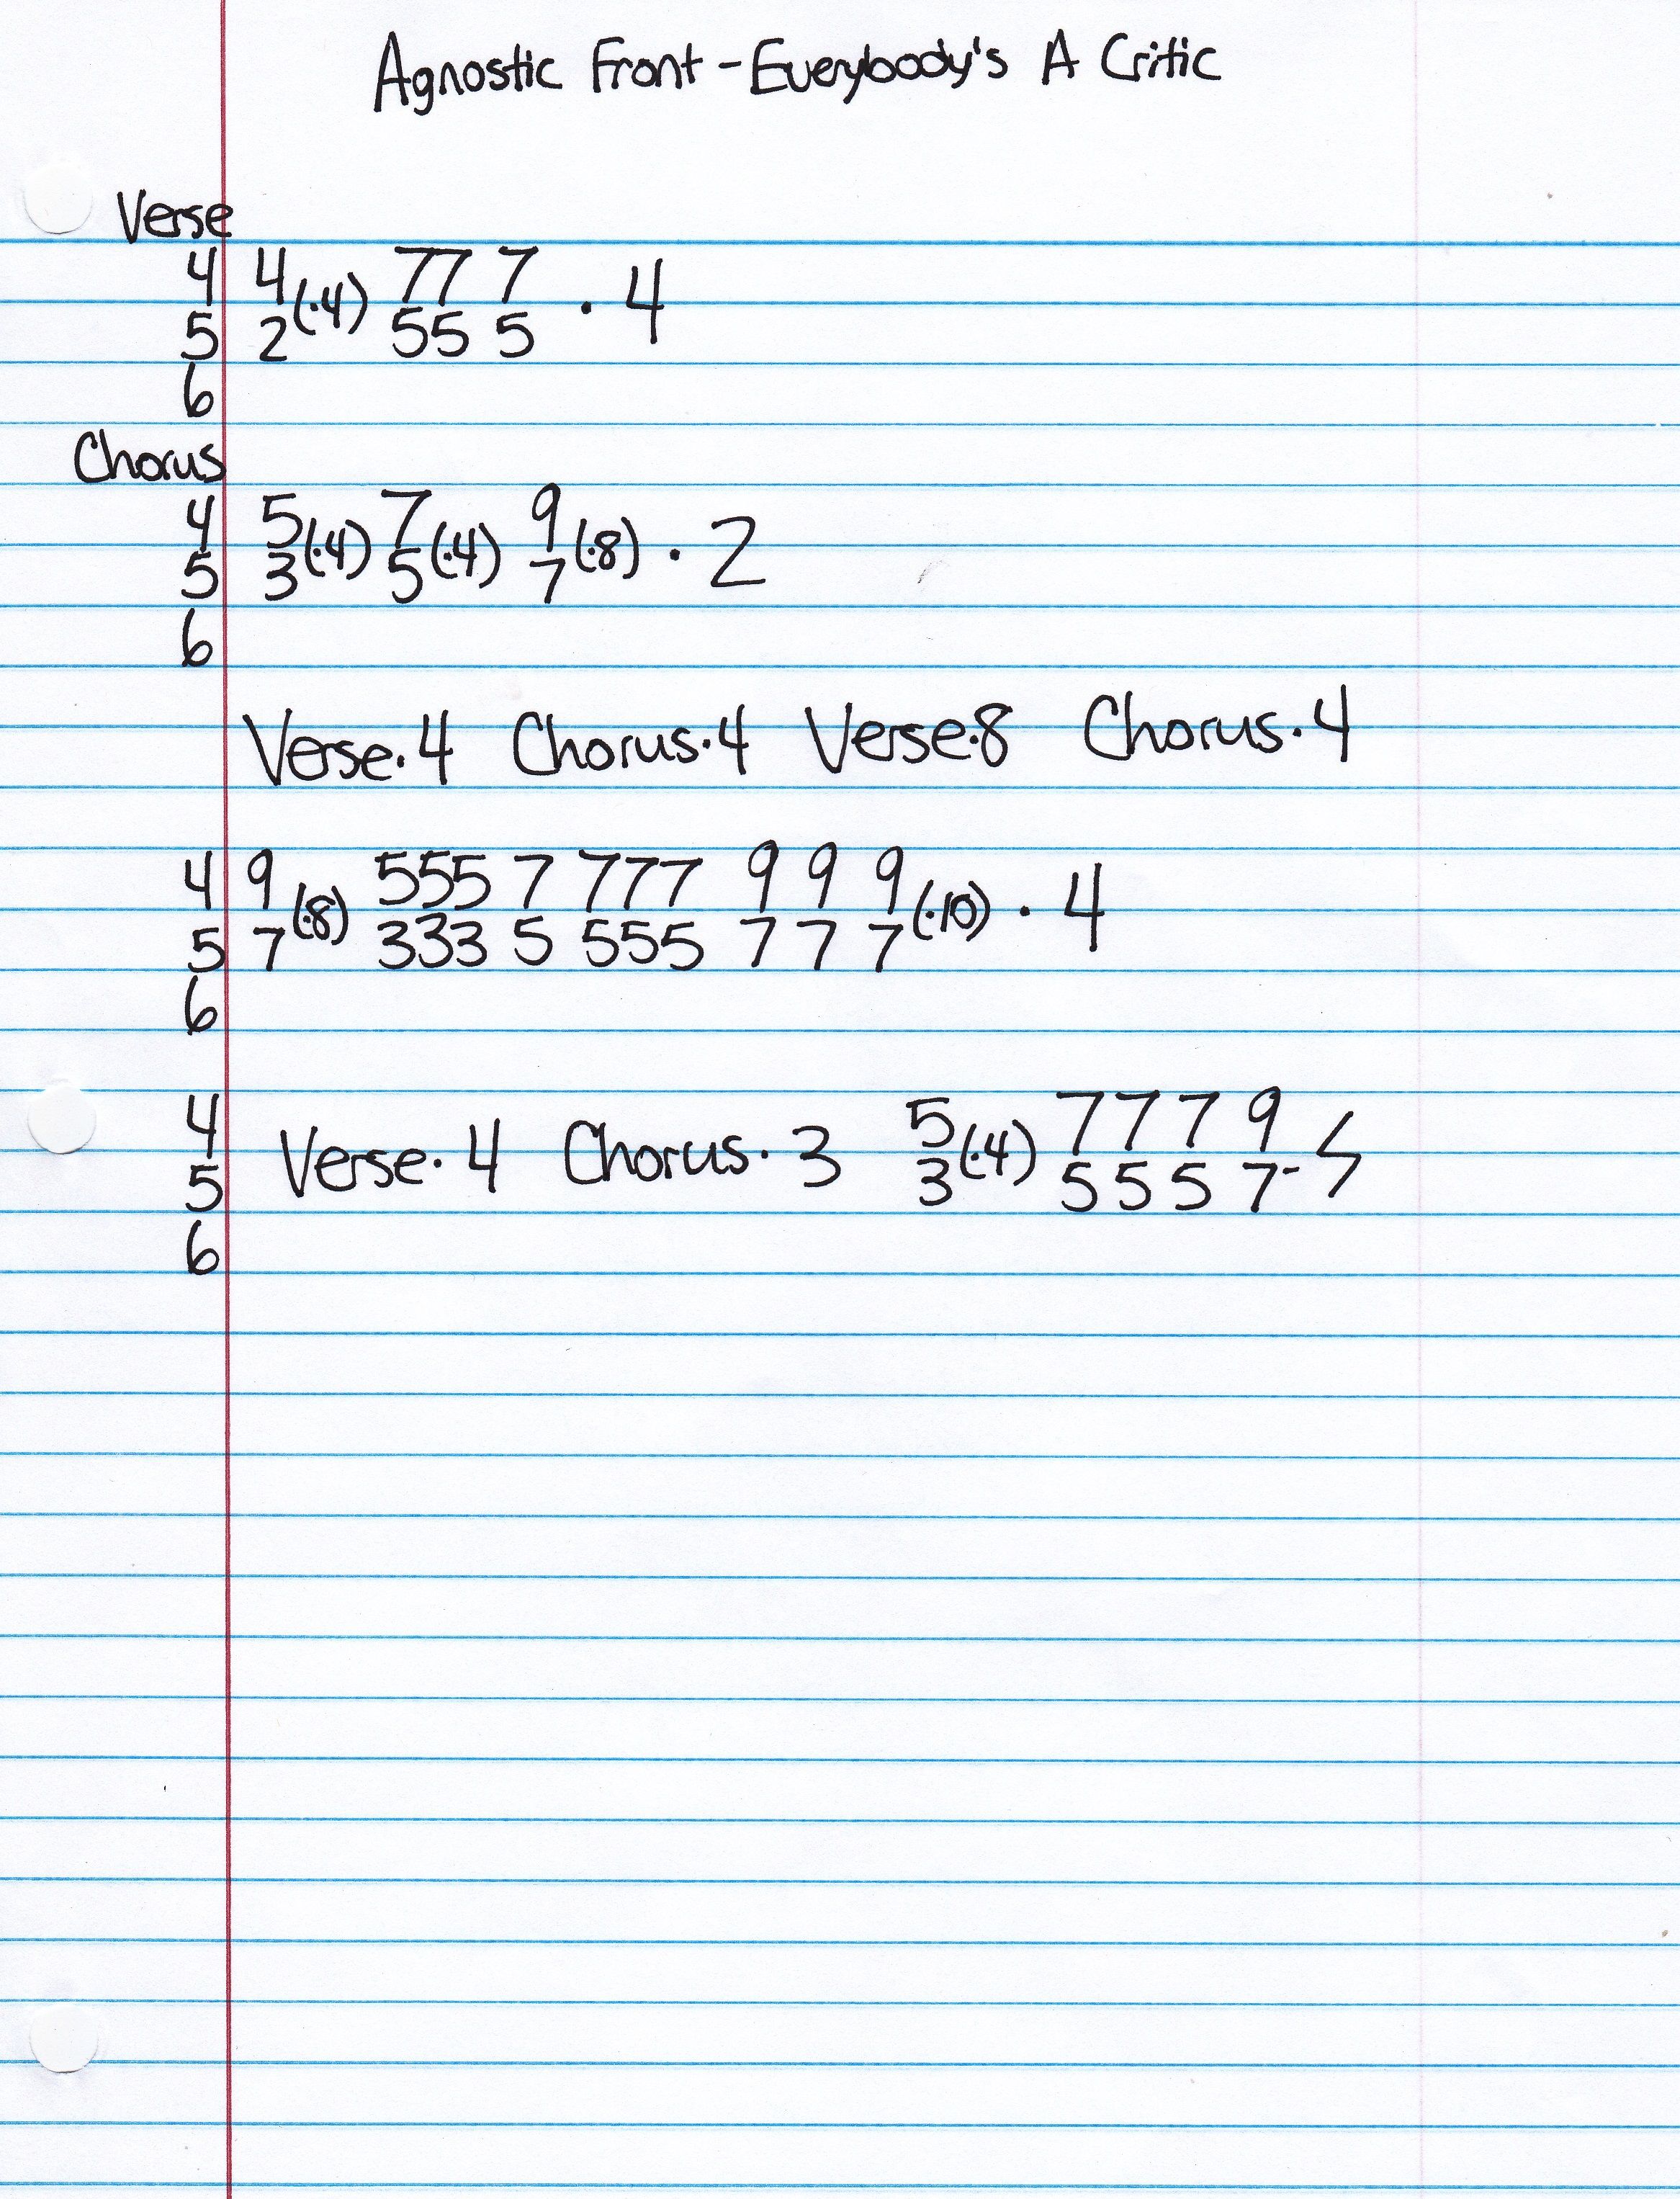 Agnostic Front - Everybody's A Critic
Verse
4 4 (·4) 77 7 · 4
5 2 55 5
6
Chorus
4 5 (·4) 7 (·4) 9 (·8) · 2
5 3 5 7
6
Verse·4 Chorus·4 Verse·8 Chorus·4
4 9 (·8) 555 7 777 9 9 9 (·10) · 4
5 7 333 5 555 7 7 7
6
4 Verse·4 Chorus·3 5 (·4) 7 7 7 9
5 3 5 5 5 7-
6